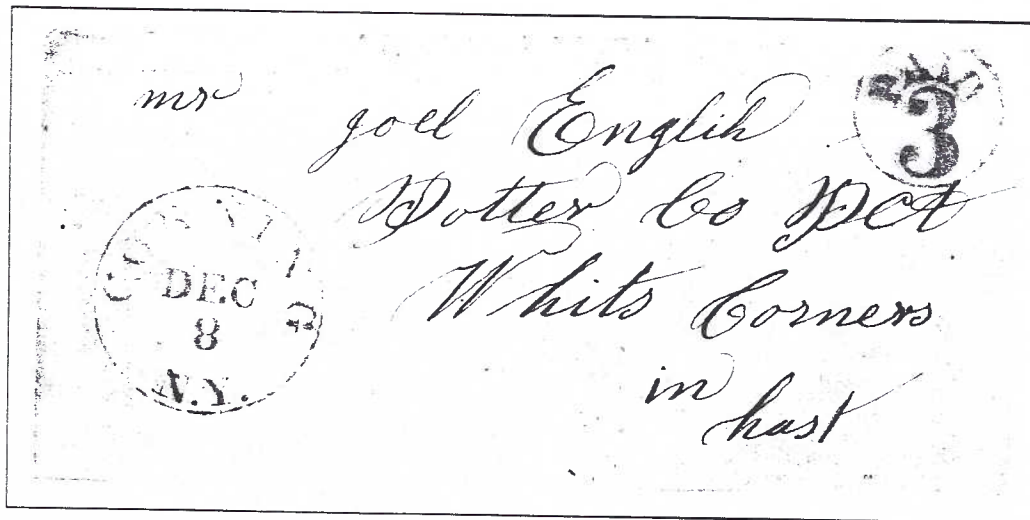 mr joel Englih
Potter Co Pa
Whits Corners
in
hast
PAID
3
CORNING
DEC
8
N.Y.